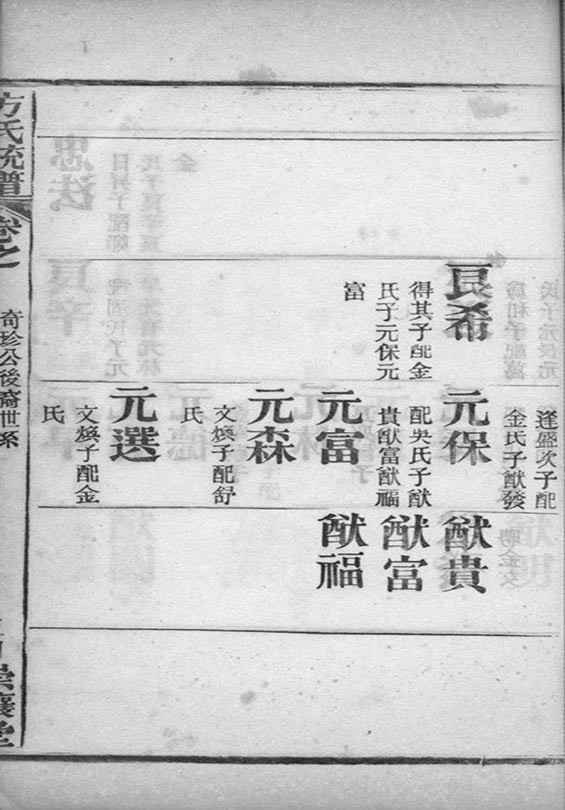 良希
得其子配金
氏子元保元
富
逢盛次子配
金氏子猷發
元保
配吳氏子猷
貴猷富猷福
元富
元森
文煥子配舒
氏
元選
文煥子配金
氏
猷貴
猷富
猷福
方氏統譜
卷之
奇珍公後裔世系
崇讓堂